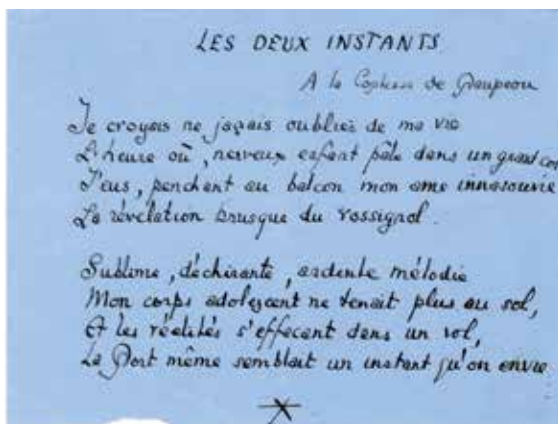 LES DEUX INSTANTS
A la Comtesse de Maupeou
Je croyais ne jamais oublier de ma vie
L'heure où, nerveux enfant pâle dans un grand col
J'eus, penchant au balcon mon ame inassouvie
La révélation brusque du rossignol.
Sublime, déchirante, ardente mélodie
Mon corps adolescent ne tenait plus au sol,
Et les réalités s'effaçant dans un vol,
La Mort même semblait un instant qu'on envie